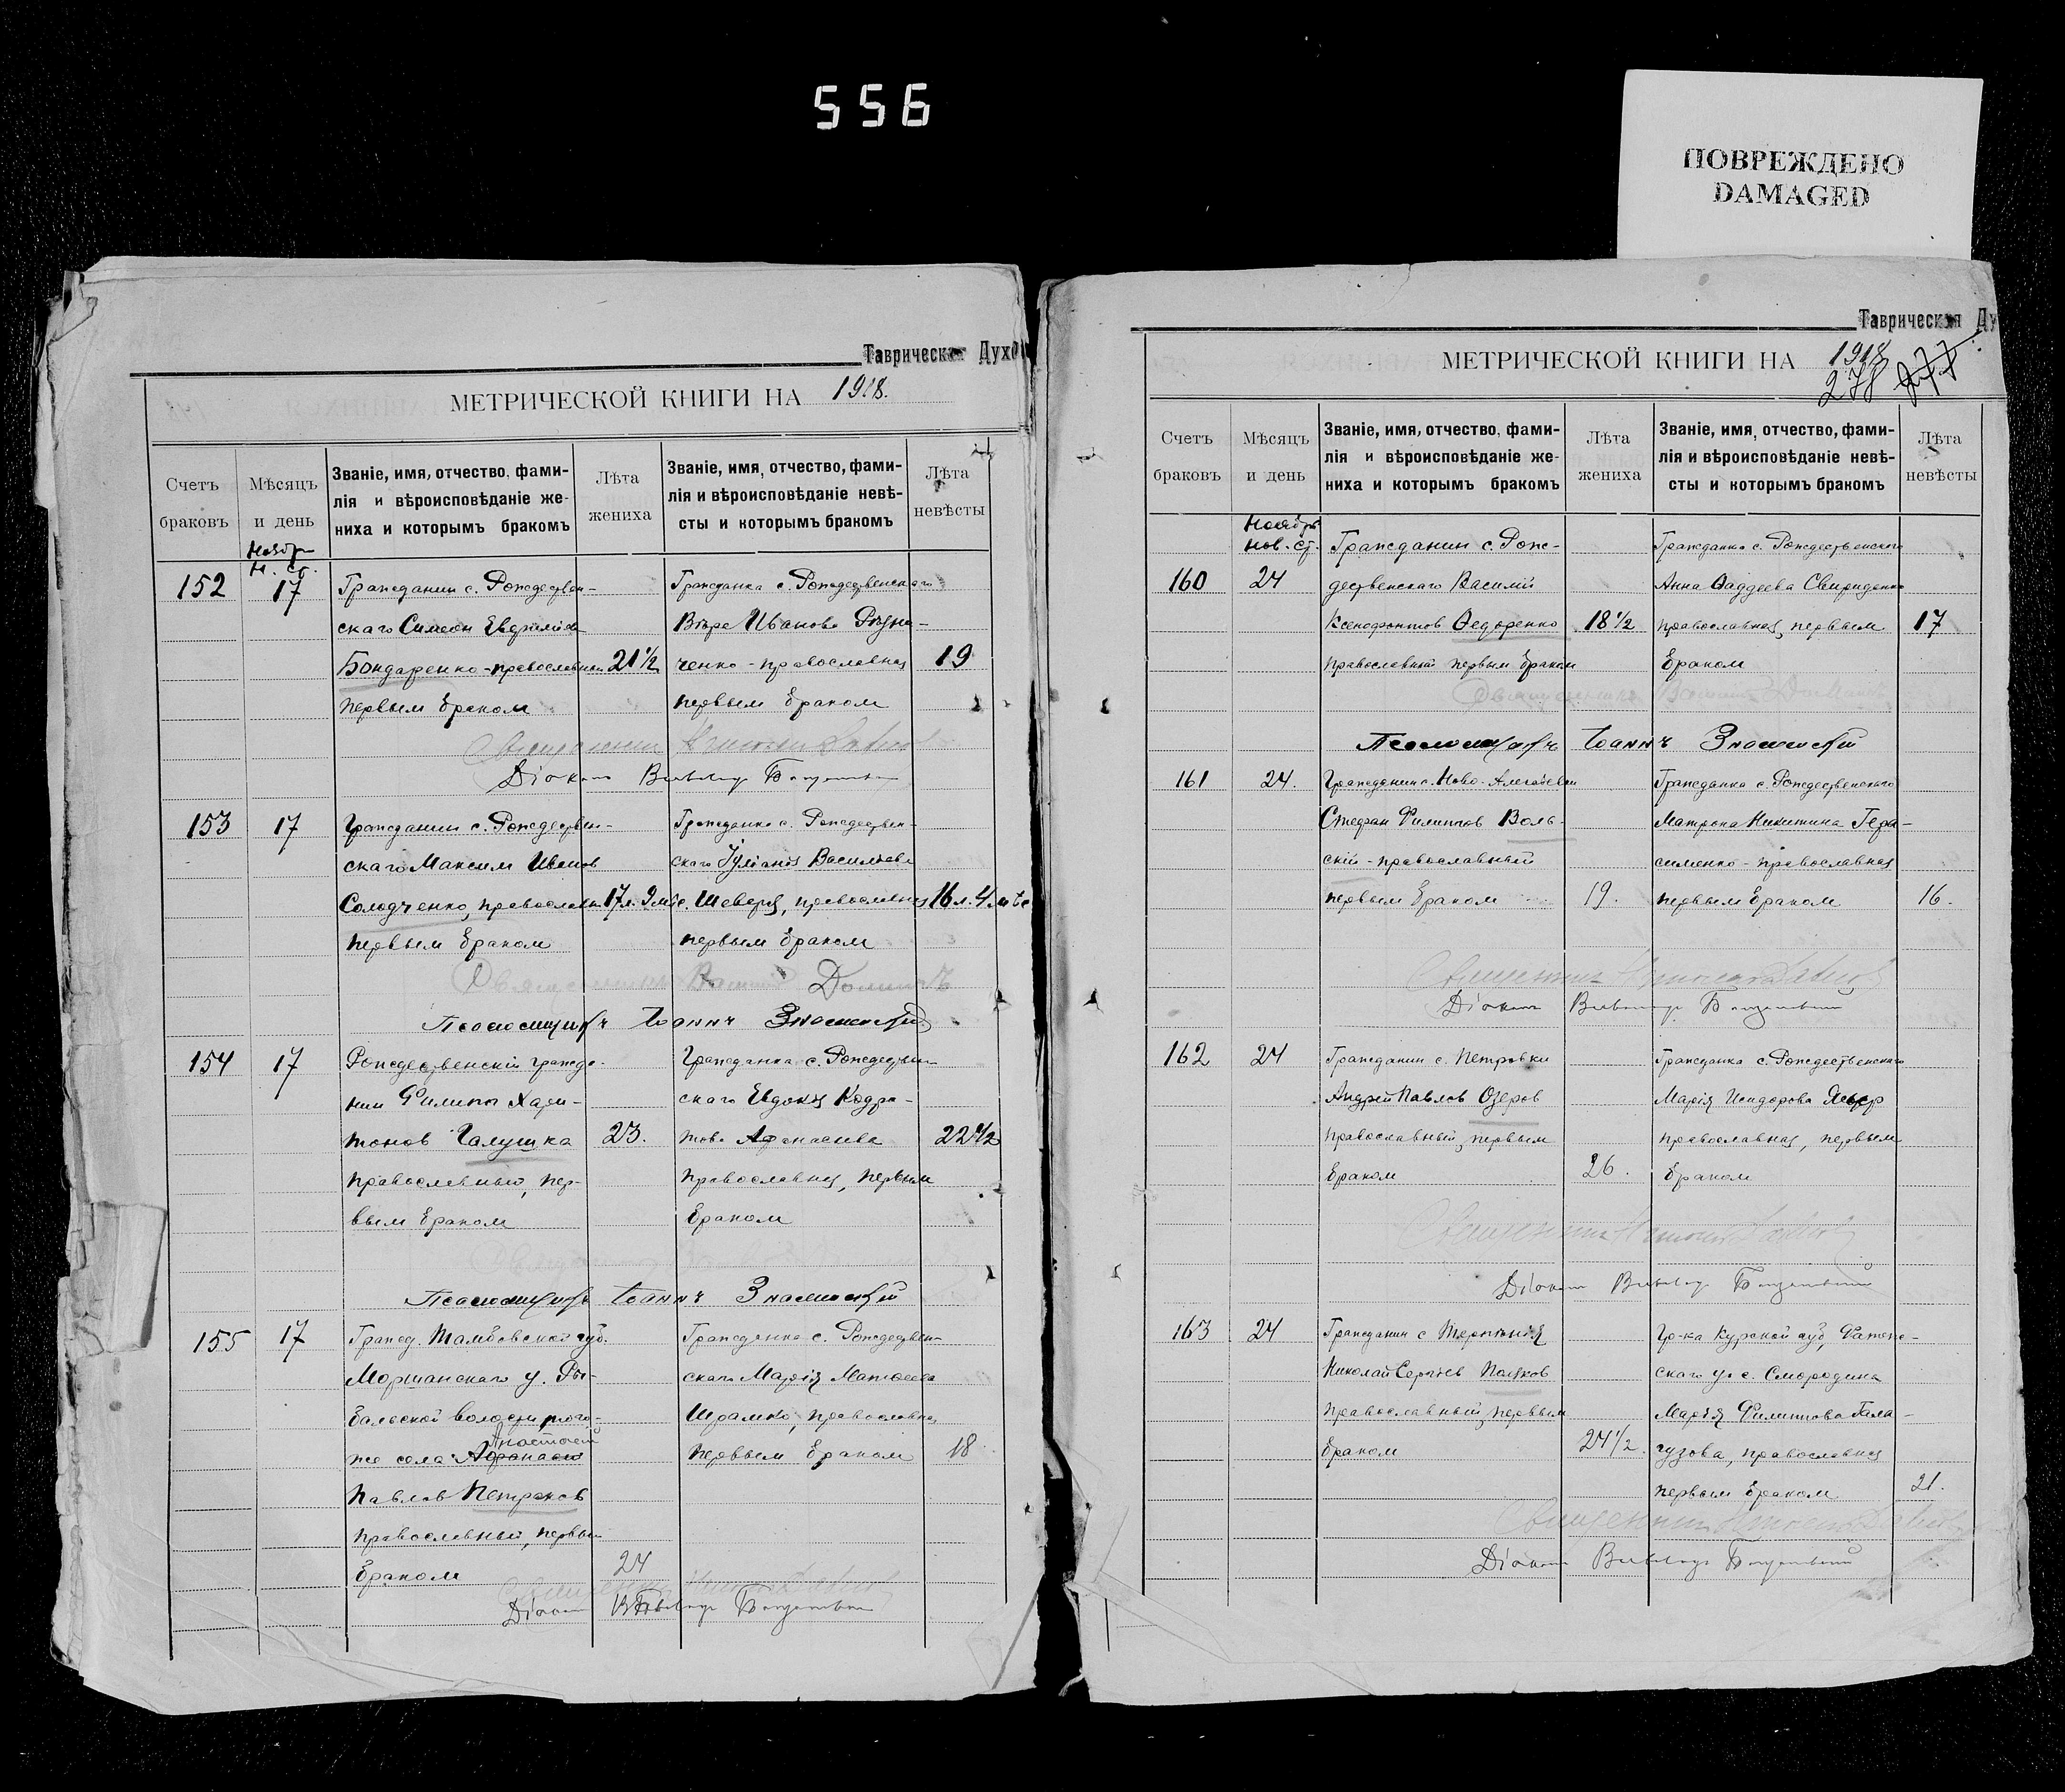 556
ПОВРЕЖДЕНО
DAMAGED
Таврическая Духо
МЕТРИЧЕСКОЙ КНИГИ НА 1918.
Счетъ браковъ
Мѣсяцъ и день
Званіе, имя, отчество, фами-
лія и вѣроисповѣданіе же-
ниха и которымъ бракомъ
Лѣта жениха
Званіе, имя, отчество, фами-
лія и вѣроисповѣданіе невѣ-
сты и которымъ бракомъ
Лѣта невѣсты
Ноябр
н. ст.
152 17 Гражданин с. Рождествен-
скаго Симеон
Бондаренко - православный
первым браком
21 1/2
Гражданка с. Рождественскаго
Вѣра Иванова Рѣзни-
ченко - православная
первым браком
19
Діакон
153 17 Гражданин с. Рождествен-
скаго Максим Иванов
Солодченко, православн.
первым браком
17 л. 9 мѣс.
Гражданка с. Рождествен-
скаго Іуліанія Васильева
Шеверя, православная
первым браком
16 л. 4 мѣс
Псаломщикъ Іоаннъ Знаменскій
154 17 Рождественскій гражда-
нин Филипп Хари-
тонов Галушка
православный, пер-
вым браком
23.
Гражданка с. Рождествен-
скаго Евдокія Кодра-
това Афанасьева
православная, первым
браком
22 1/2
Псаломщикъ Іоаннъ Знаменскій
155 17 Гражд. Тамбовской губ.
Моршанскаго у. Ры-
бальской волости, того-
же села Афанасий
Анастасій
Павлов Петраков
православный, первым
браком
24
Гражданка с. Рождествен-
скаго Марія Матѳеева
Шрамко, православная,
первым браком
18
Діакон
Таврическая Ду
МЕТРИЧЕСКОЙ КНИГИ НА 1918
278 277
Счетъ браковъ
Мѣсяцъ и день
Званіе, имя, отчество, фами-
лія и вѣроисповѣданіе же-
ниха и которымъ бракомъ
Лѣта жениха
Званіе, имя, отчество, фами-
лія и вѣроисповѣданіе невѣ-
сты и которымъ бракомъ
Лѣта невѣсты
Ноябрь
нов. ст.
160 24 Гражданин с. Рож-
дественскаго Василій
Ксенофонтов Ѳедоренко
православный первым браком
18 1/2
Гражданка с. Рождественскаго
Анна Ѳаддеева Свириденко
православная, первым
браком
17
Псаломщикъ Іоаннъ Знаменскій
161 24. Гражданин с. Ново-Алексѣевки
Стефан Филиппов Воль-
скій - православный
первым браком
19.
Гражданка с. Рождественскаго
Матрона Никитина Гера-
сименко - православная
первым браком
16.
Діакон
162 24 Гражданин с. Петровки
Андрей Павлов Озеров
православный, первым
браком
26.
Гражданка с. Рождественскаго
Марія Исидорова
православная, первым
браком
Діакон
163 24 Гражданин с Терпѣнія
Николай Сергѣев Поляков
православный, первым
браком
24 1/2.
Гр-ка Курской губ, Фатеж-
скаго у. с. Смородина
Марія Филиппова Гала-
гузова, православная
первым браком
21.
Діакон